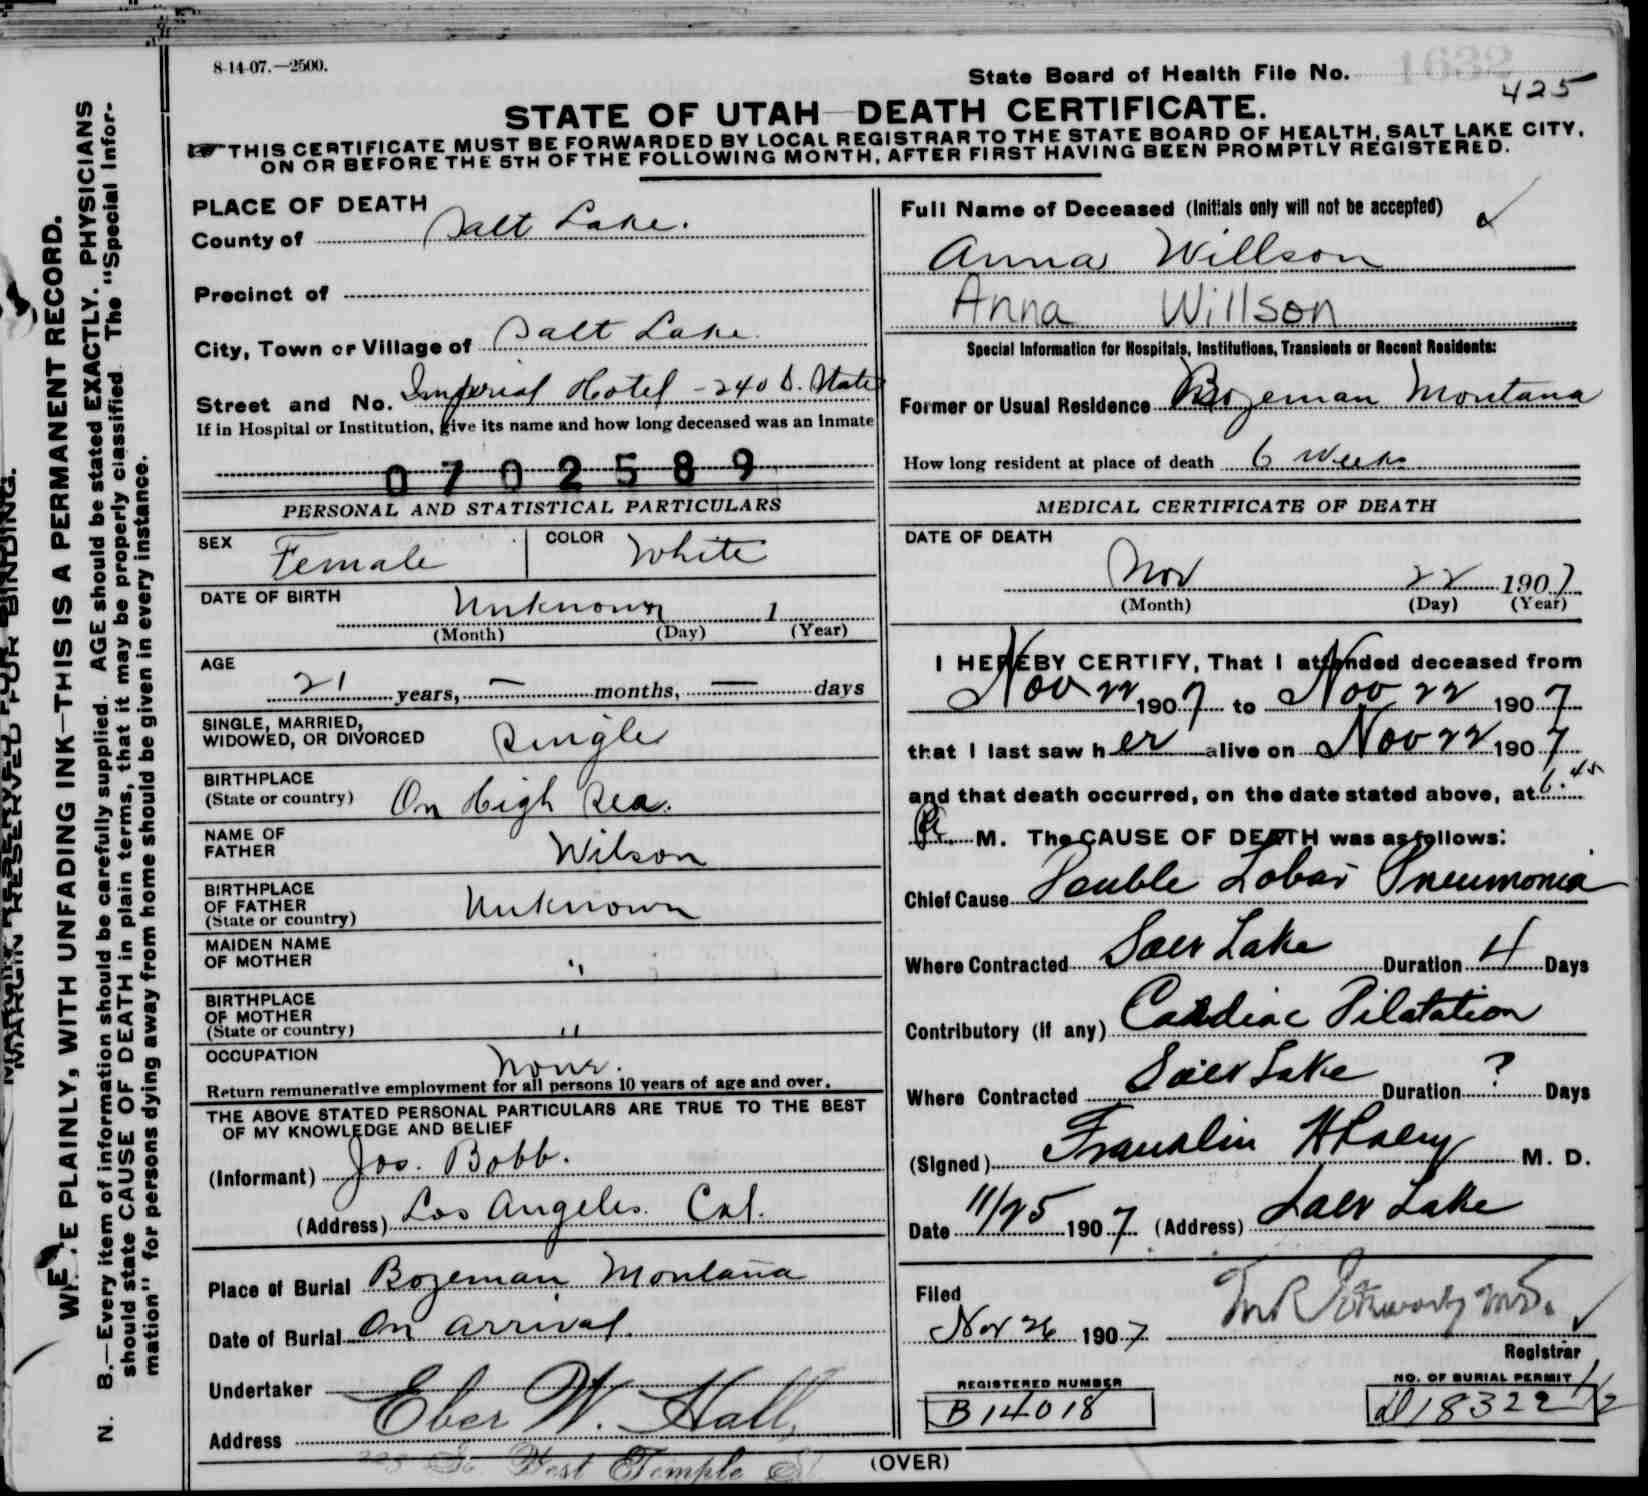 8-14-07.—2500.
State Board of Health File No. 1632
425
STATE OF UTAH—DEATH CERTIFICATE.
THIS CERTIFICATE MUST BE FORWARDED BY LOCAL REGISTRAR TO THE STATE BOARD OF HEALTH, SALT LAKE CITY,
ON OR BEFORE THE 5TH OF THE FOLLOWING MONTH, AFTER FIRST HAVING BEEN PROMPTLY REGISTERED.
MARGIN RESERVED FOR BINDING.
WRITE PLAINLY, WITH UNFADING INK—THIS IS A PERMANENT RECORD.
N. B.—Every item of information should be carefully supplied. AGE should be stated EXACTLY. PHYSICIANS
should state CAUSE OF DEATH in plain terms, that it may be properly classified. The "Special Infor-
mation" for persons dying away from home should be given in every instance.
PLACE OF DEATH
County of Salt Lake.
Precinct of
City, Town or Village of Salt Lake.
Street and No. Imperial Hotel - 240 S. State
If in Hospital or Institution, give its name and how long deceased was an inmate
0702589
PERSONAL AND STATISTICAL PARTICULARS
SEX Female COLOR White
DATE OF BIRTH Unknown 1
(Month) (Day) (Year)
AGE
21 years, — months, — days
SINGLE, MARRIED,
WIDOWED, OR DIVORCED Single
BIRTHPLACE
(State or country) On High Sea.
NAME OF
FATHER Wilson
BIRTHPLACE
OF FATHER
(State or country) Unknown
MAIDEN NAME
OF MOTHER "
BIRTHPLACE
OF MOTHER
(State or country) "
OCCUPATION None.
Return remunerative employment for all persons 10 years of age and over.
THE ABOVE STATED PERSONAL PARTICULARS ARE TRUE TO THE BEST
OF MY KNOWLEDGE AND BELIEF
(Informant) Jos. Bobb.
(Address) Los Angeles. Cal.
Place of Burial Bozeman, Montana
Date of Burial On arrival.
Undertaker Eber W. Hall,
Address So. West Temple St
Full Name of Deceased (Initials only will not be accepted)
Anna Willson
Anna Willson
Special Information for Hospitals, Institutions, Transients or Recent Residents:
Former or Usual Residence Bozeman Montana
How long resident at place of death 6 Weeks
MEDICAL CERTIFICATE OF DEATH
DATE OF DEATH
Nov 22 1907
(Month) (Day) (Year)
I HEREBY CERTIFY, That I attended deceased from
Nov 22 1907 to Nov 22 1907
that I last saw her alive on Nov 22 1907
and that death occurred, on the date stated above, at 6.45
M. The CAUSE OF DEATH was as follows:
Chief Cause Double Lobar Pneumonia
Where Contracted Salt Lake Duration 4 Days
Contributory (if any) Cardiac Dilatation
Where Contracted Salt Lake Duration ? Days
(Signed) Franklin M. D.
Date 11/25 1907 (Address) Salt Lake
Filed
Nov 26 1907
Registrar
REGISTERED NUMBER
B14018
NO. OF BURIAL PERMIT 1/2
D18322
(OVER)